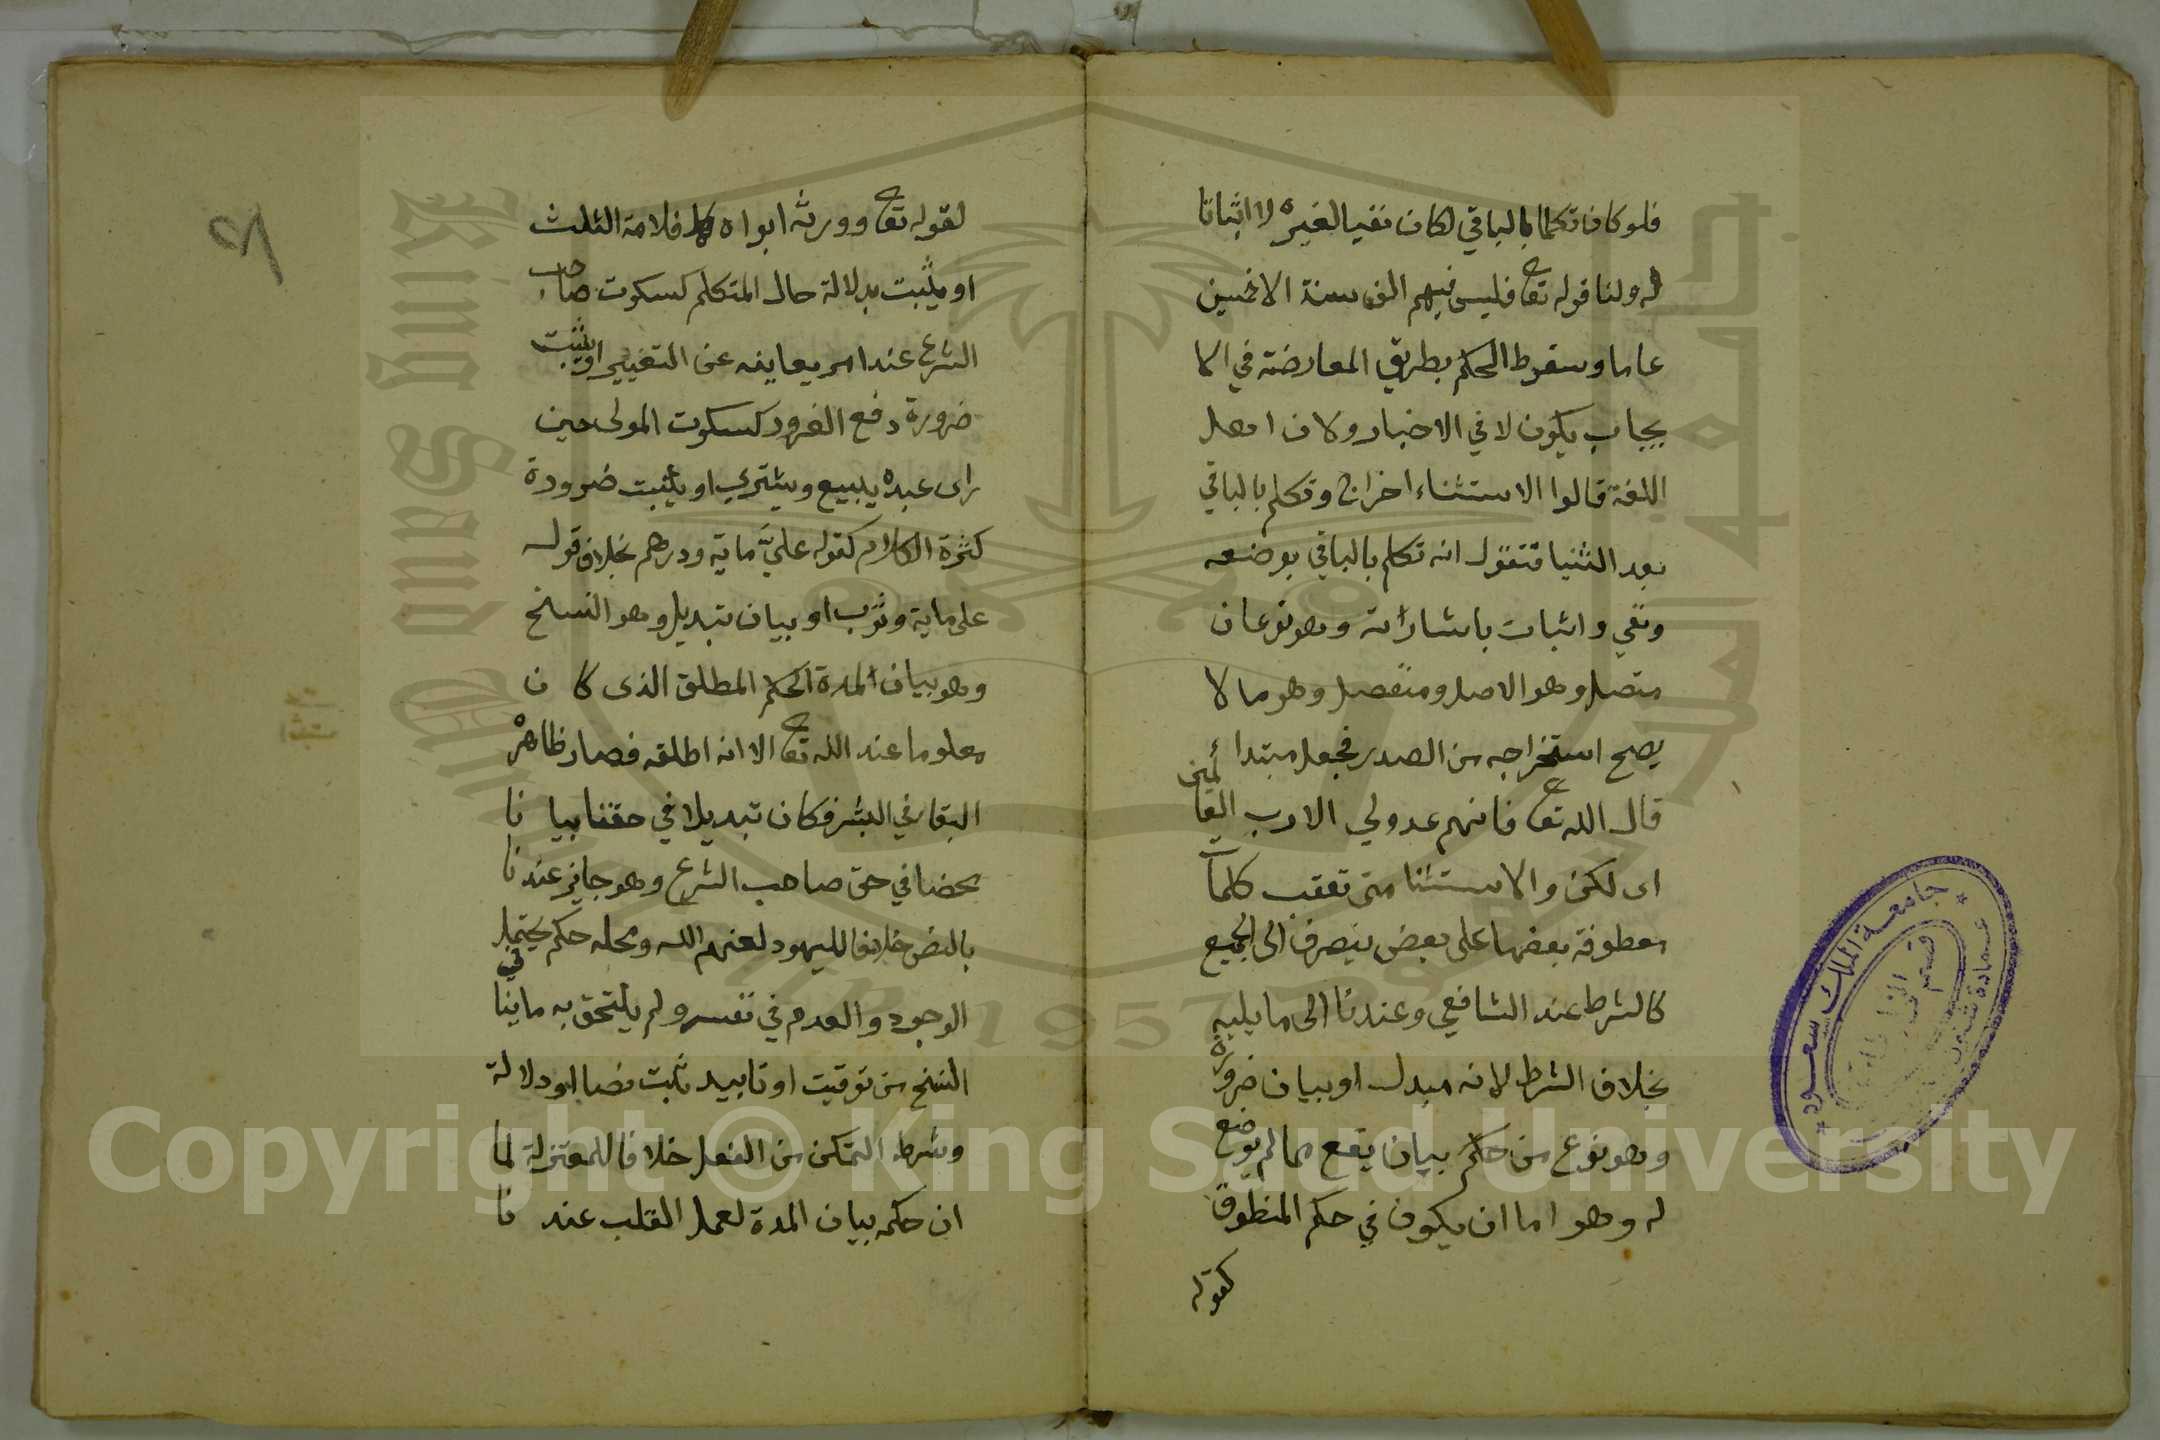 فلو كان تكلما بالباقي لكان نفيا لغيره لا اثباتا
له ولنا قوله تع فلبس فيهم الف سنة الا خمسين
عاما وسقوط الحكم بطريق المعارضة في الا
يجاب يكون لا في الاخبار ولان اهل
اللغة قالوا الاستثناء اخراج وتكلم بالباقي
بعد الثنيا فنقول انه تكلم بالباقي بوضعه
ونفي واثبات باشارته وهو نوعان
متصل وهو الاصل ومنفصل وهو ما لا
يصح استخراجه من الصدر فجعل مبتدأ
قال الله تع فانهم عدو لي الا رب العالمين
اى لكن والاستثنا متى تعقب كلمات
معطوفة بعضها على بعض ينصرف الى الجميع
كالشرط عند الشافعي وعندنا الى ما يليه
بخلاف الشرط لانه مبدل او بيان ضرورة
وهو نوع من حكم بيان يقع بما لم يوضع
له وهو اما ان يكون في حكم المنطوق
كقوله
لقوله تع وورثه ابواه فلامه الثلث
او يثبت بدلالة حال المتكلم كسكوت صاحب
الشرع عند امر يعاينه عن التغيير او يثبت
ضرورة دفع الغرور كسكوت المولى حين
راى عبده يبيع ويشتري او يثبت ضرورة
كثرة الكلام كقوله عليّ ماية ودرهم بخلاف قوله
على ماية وثوب او بيان تبديل وهو النسخ
وهو بيان المدة الحكم المطلق الذى كا ن
معلوما عند الله تع الا انه اطلقه فصار ظاهره
البقا في البشر فكان تبديلا في حقنا بيا نا
محضا في حق صاحب الشرع وهو جايز عندنا
بالنص خلافا لليهود لعنهم الله ومحله حكم يحتمل
الوجود والعدم في نفسه ولم يلتحق به ما ينافي
النسخ من توقيت او تابيد ثبت نصا او دلالة
وشرط التمكن من الفعل خلافا للمعتزلة لما
ان حكمه بيان المدة لعمل القلب عند نا
جامعة الملك سعود
عمادة شئون
قسم
King Saud University
1957
Copyright © King Saud University